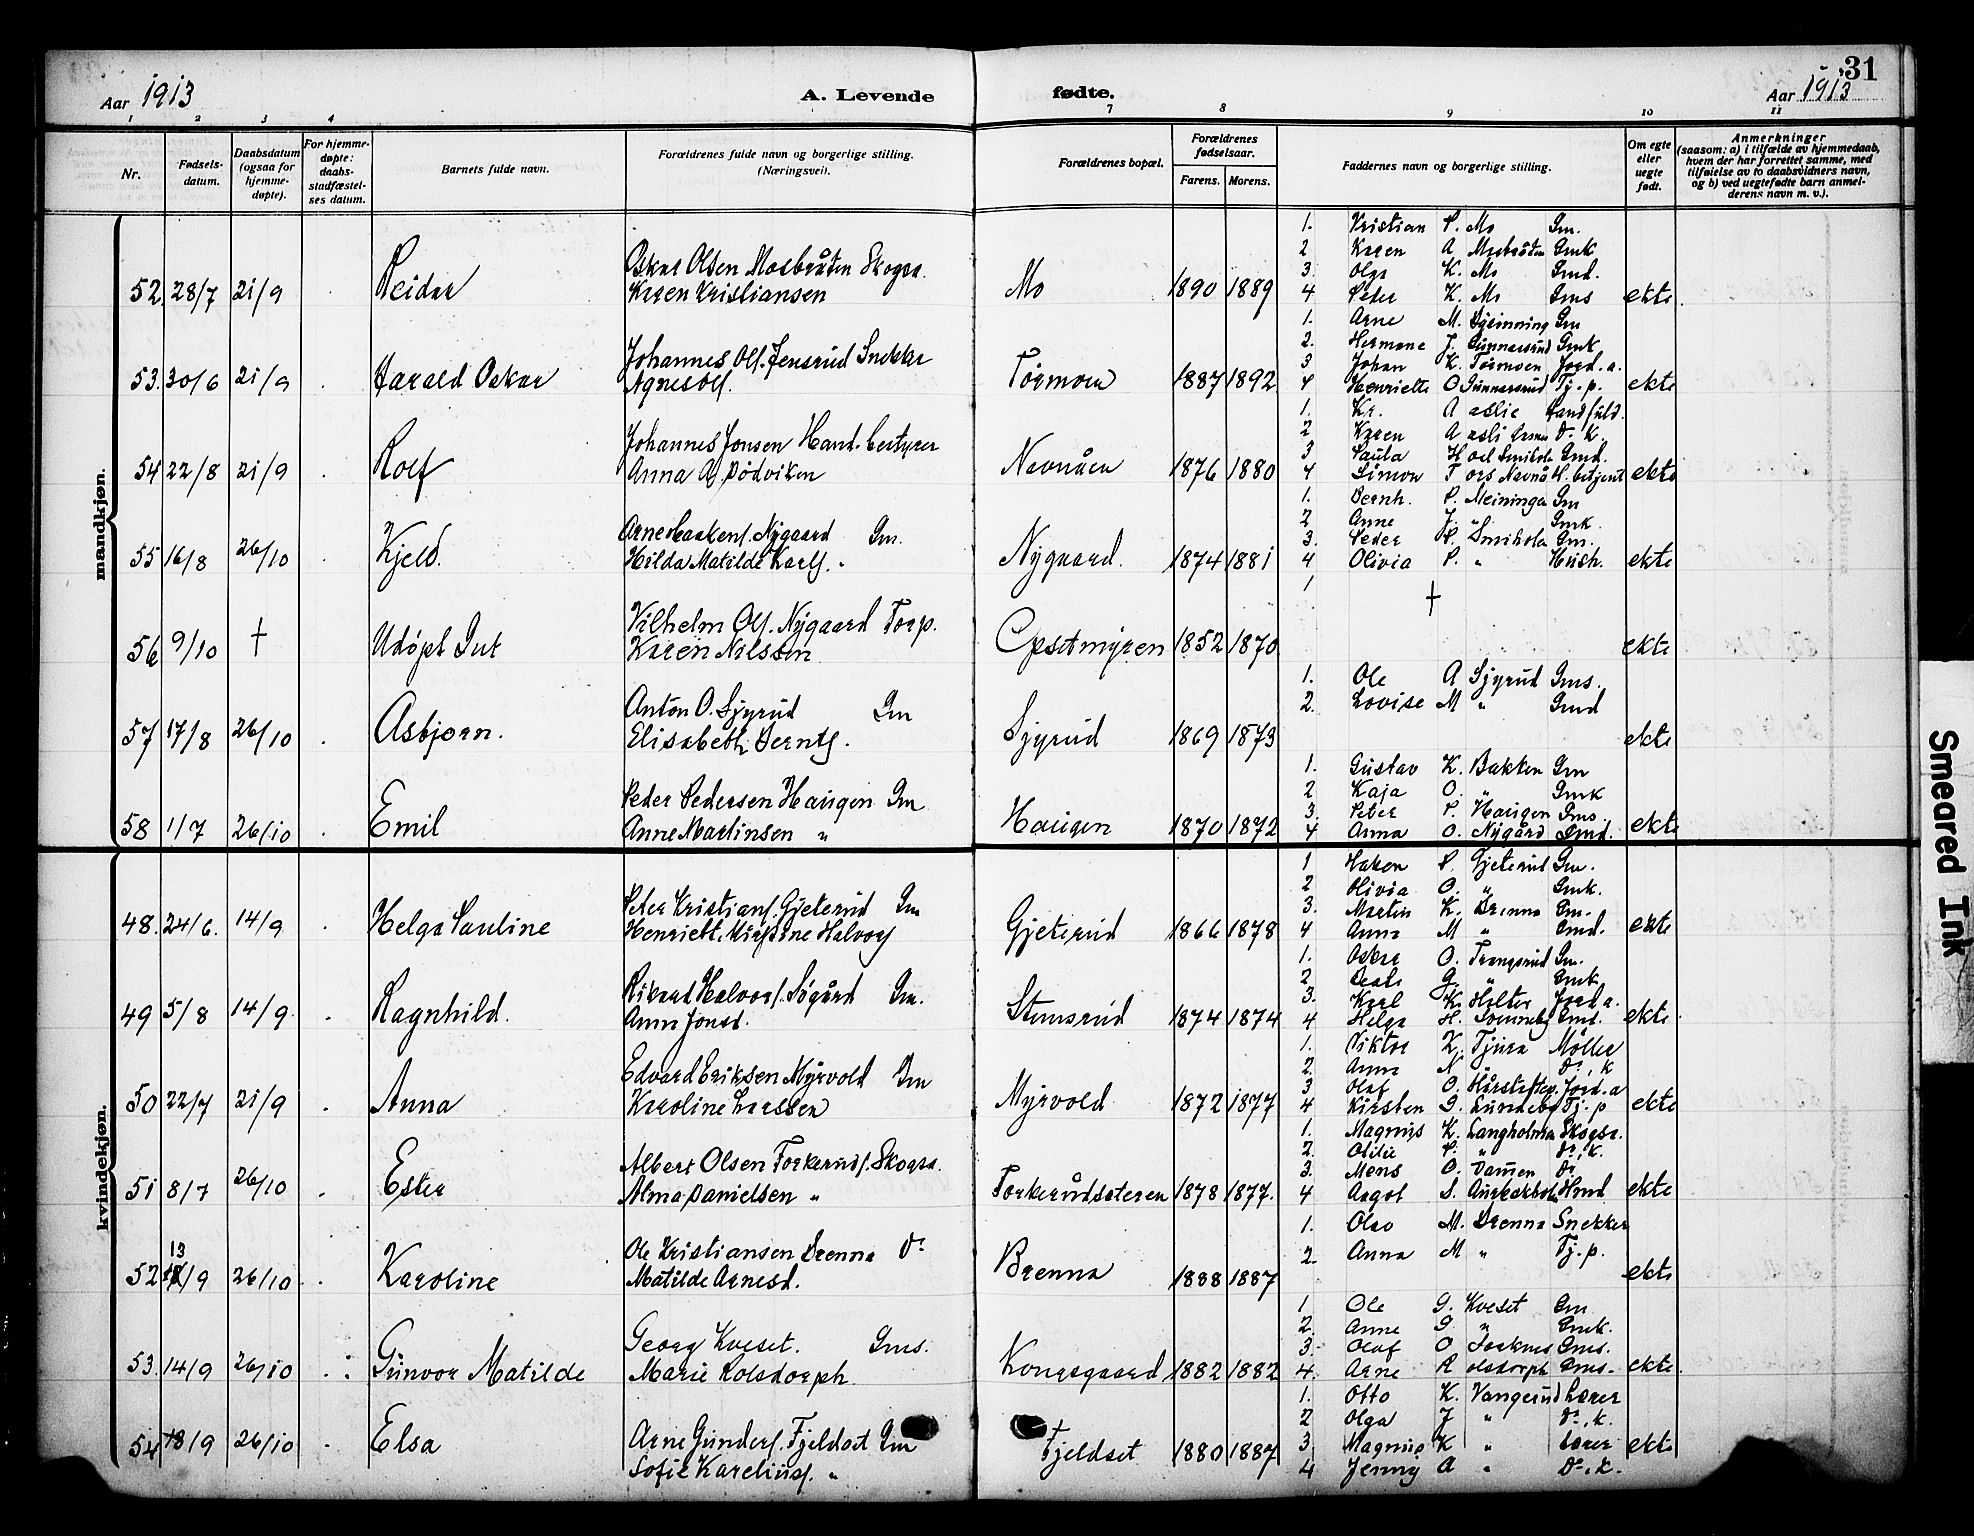 31
Aar 1913
A. Levende fødte.
Aar 1913
1 2 3 4 7 8 9 10 11
Nr.
Fødsels-datum.
Daabsdatum (ogsaa for hjemme-døpte).
For hjemme-døpte: daabs-stadfæstel-ses datum.
Barnets fulde navn.
Forældrenes fulde navn og borgerlige stilling. (Næringsvei).
Forældrenes bopæl.
Forældrenes fødselsaar.
Farens. Morens.
Faddernes navn og borgerlige stilling.
Om egte eller uegte født.
Anmerkninger (saasom: a) i tilfælde av hjemmedaab, hvem der har forrettet samme, med tilføielse av to daabsvidners navn, og b) ved uegtefødte barn anmel-derens navn m. v.).
mandkjøn.
52. 28/7 21/9 Reidar
Oskar Olsen Mosbråten Skogsa.
Karen Kristiansen
Mo 1890 1889 ekte
1. Kristian P. Mo Gm.
2 Karen A Mosbråten Gmk
3. Olga K. Mo Gmd.
4 Peder K. Mo Gms
53. 30/6 21/9 Harald Oskar
Johannes Ols. Jensrud Snekker
Agnes Ols.
Tørmoen 1887 1892 ekte
1. Arne M.
2. Hermane J. Gunnarsrud Gmk
3 Johan K. Tørmoen Jord.a.
4 Henriette O Gunnarsrud Tj.p.
54 22/8 21/9 Rolf
Johannes Jonsen Hand. bestyrer
Anna A. Bødviken
Navnåen 1876 1880 ekte
1. Kr. A aslie
2 Karen A asli
3 Paula H oel Smihola Gmd.
4 Simon T ors Navnå H. betjent
55 16/8 26/10 Kjeld.
Arne Haakens. Nygaard Gm.
Hilda Matilde Karls. "
Nygaard. 1874 1881 ekte
1. Bernh. P. Meiningen Gm
2 Anne J. " Gmk.
3. Peder P. Smihola Gm.
4 Olivia P. " Hush.
56 9/10 † Udøpt Gut
Vilhelm Ols. Nygaard Torp.
Karen Nilssen
Opsetmyren 1852 1870 ekte
1 †
57 17/8 26/10 Asbjørn.
Anton O. Sjyrud Gm
Elisabeth Bernts.
Sjyrud 1869 1873 ekte
1. Ole A Sjyrud Gms.
2. Lovise M " Gmd
58 1/7 26/10 Emil
Peder Pedersen Haugen Gm
Anne Martinsen "
Haugen 1870 1872 ekte
1. Gustav K. Bakken Gm
2 Kaja O. " Gmk
3. Peter P. Haugen Gms
4 Anna O. Nygård Gmd.
kvindekjøn.
48. 24/6. 14/9 Helga Pauline
Peter Kristians. Gjeterud Gm
Gjeterud 1866 1878 ekte
1 Haken P. Gjeterud Gm.
2 Olivia O. " Gmk.
3. Martin K. Brenna Gm.
4 Anna M " Gmd.
49 5/8 14/9 Ragnhild.
Rikard Halvors. Søgård Gm.
Anna Jonsd.
Stensrud 1874 1874 ekte
1. Oskar O. Trangsrud Gm.
2 Beate G. " Gmk
3. Karl K. Holter Jord a.
4 Helga H. Gmd.
50 22/7 21/9 Anna
Edvard Eriksen Myrvold Gm
Karoline Larssen
Myrvold 1872 1877 ekte
1. Viktor K. Tjura Møller
2. Anna N " Do, K
3 Olaf O. Jord.a
4 Kirsten G. Lundeby Tj.p
51 8/7 26/10 Ester
Albert Olsen Torkeruds. Skogsa.
Alma Danielsen "
Torkerudseteren 1878 1877. ekte
1. Magnus K. Langholmen Skogsa.
2. Otilie P. " Do, K.
3. Mons O. Dammen Do
4 Aagot S.
52 13/9 26/10 Karoline
Ole Kristiansen Brenna Do
Matilde Arnesd.
Brenna 1888 1887 ekte
1. Olav M. Brenna Snekker
2. Anna M " Tj.p.
53. 14/9 26/10 Gunvor Matilde
Georg Kveset. Gms.
Marie Rolsdorph
Kongsgaard 1882 1882 ekte
1. Ole G. Kveset Gm
2. Anne G " Gmk.
3. Olaf O Gms.
4. Arne R olsdorph Gms.
54 18/9 26/10 Elsa
Arne Gunders. Fjeldset Gm
Sofie Karelius. "
Fjeldset 1880 1887 ekte
1. Otto K. Vangerud Lærer
2 Olga J " Do, k.
3. Magnus K " Lærer
4 Jenny A " Do, k.
Smeared Ink